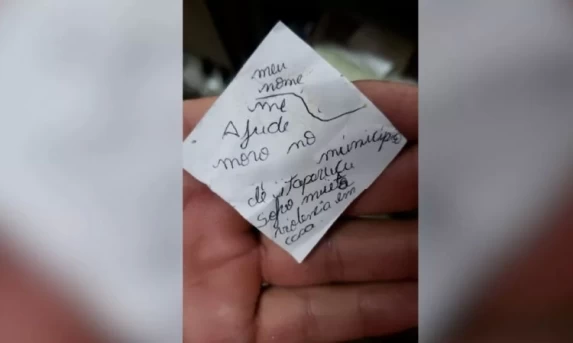 meu
nome
me
Ajude
moro no
município
de itaporticu
sofro muito
violencia em
casa